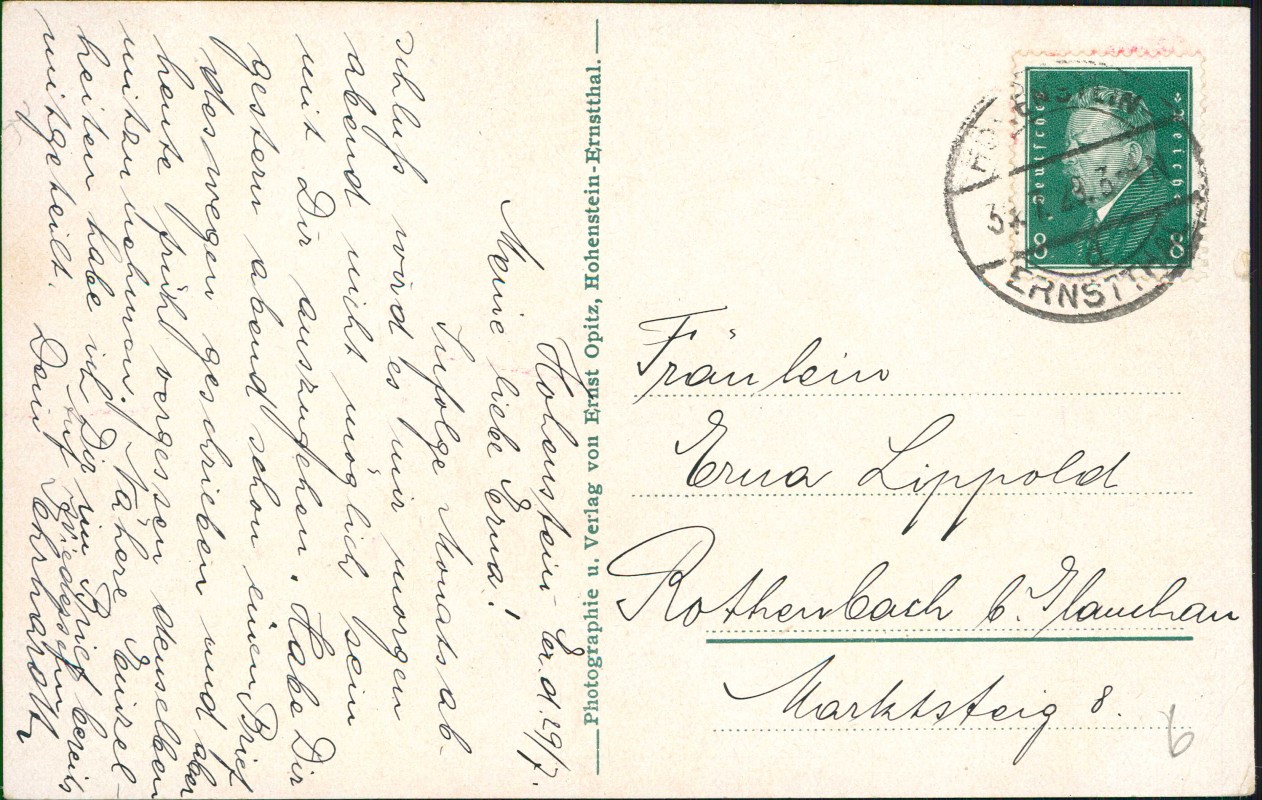 Hohenstein-Er. d. 29/7.
Meine liebe Erna!
Infolge Monatsab-
schluß wird es mir morgen
abend nicht möglich sein
mit Dir auszugehen. Habe Dir
gestern abend schon einen Brief
deswegen geschrieben und aber
heute früh vergessen denselben
mitzunehmen. Nähere Einzel-
heiten habe ich Dir im Brief bereits
mitgeteilt. Auf Wiedersehn
Dein Ehrhardt
Photographie u. Verlag von Ernst Opitz, Hohenstein-Ernstthal.
Deutsches Reich
8 8
HOHENSTEIN
ERNSTTHAL
d
Fräulein
Erna Lippold
Rothenbach b. Glauchau
Marktsteig 8.
6